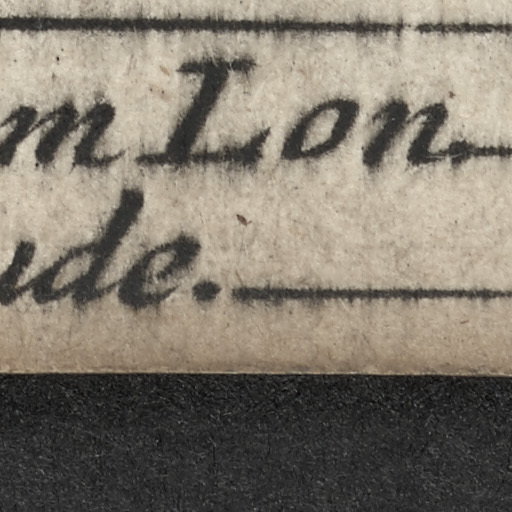 m Lon.
ude.